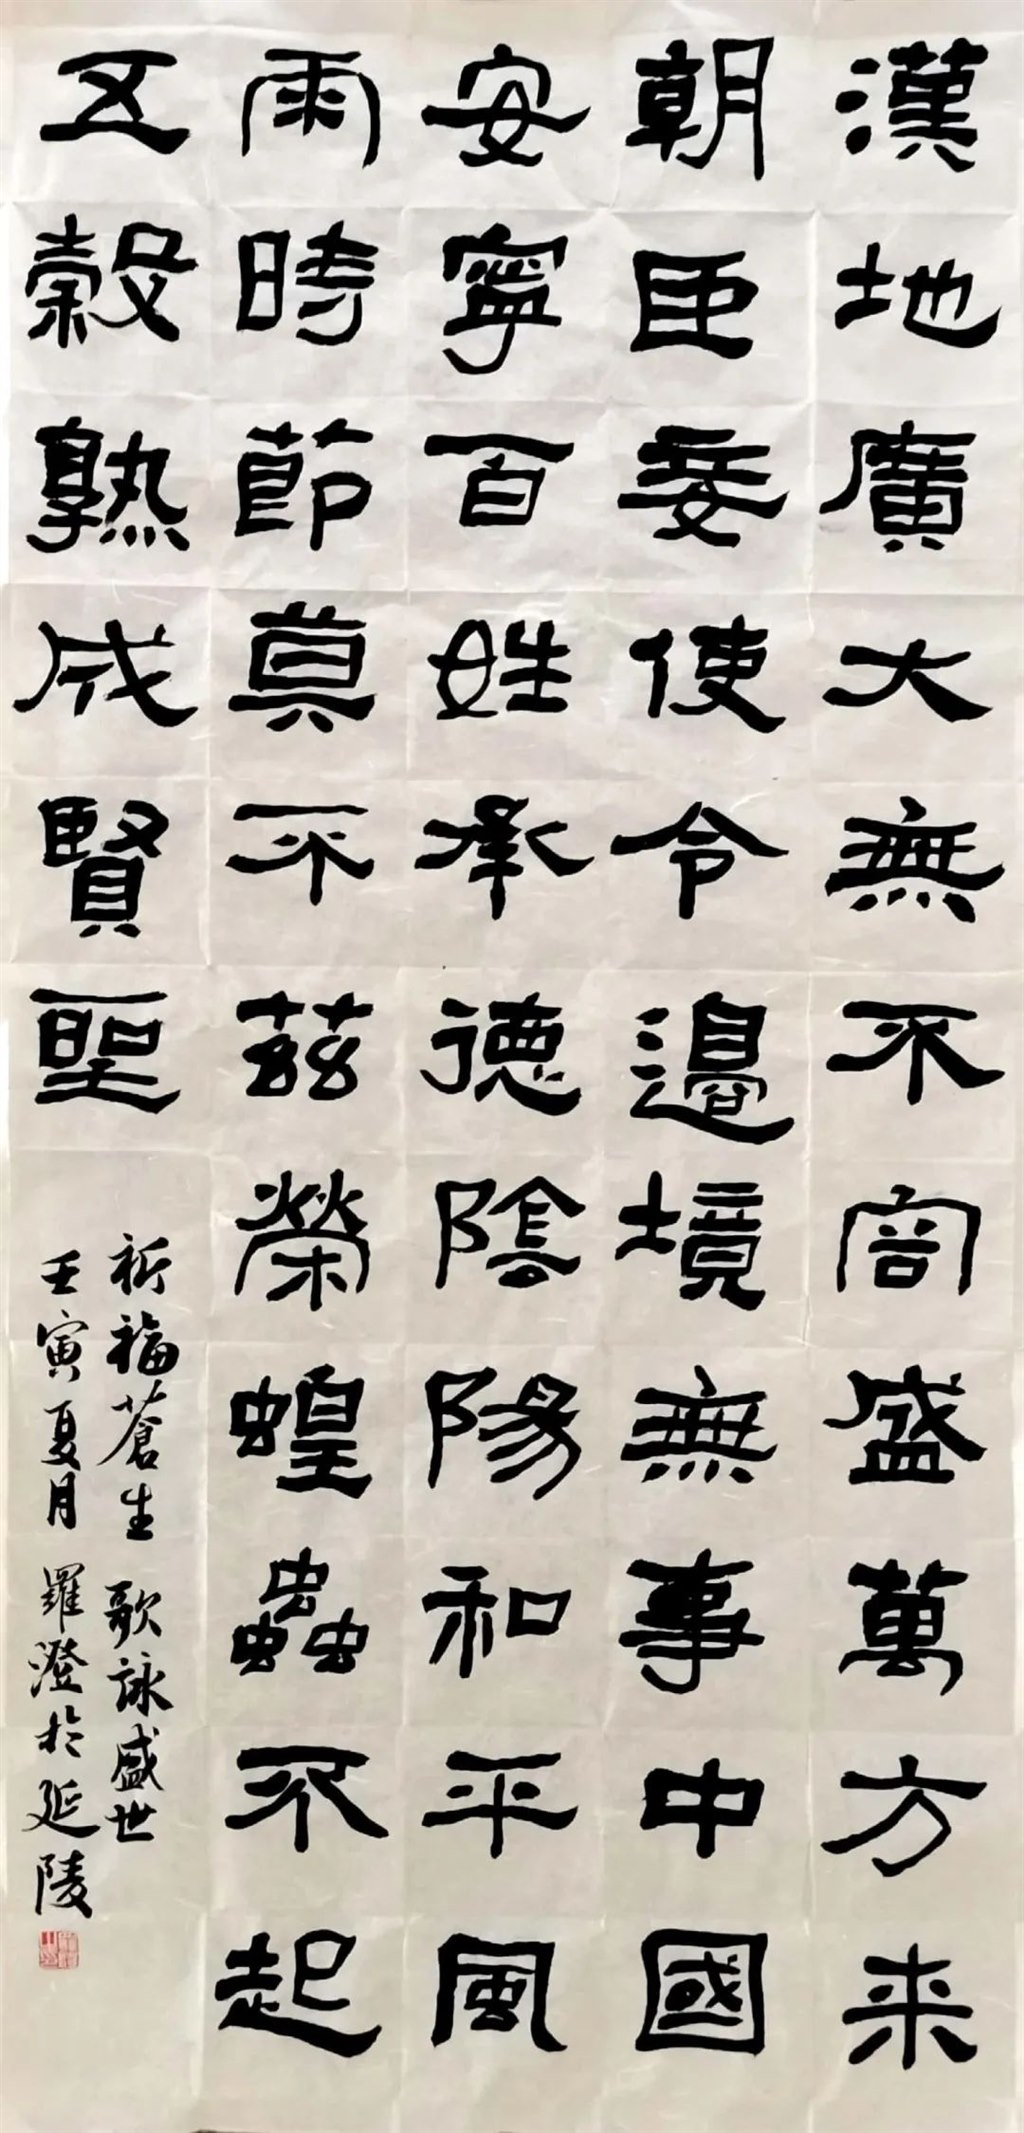 漢地廣大無不容盛萬方来
朝臣委使令邉境無事中國
安寧百姓承德陰陽和平風
雨時節莫不茲榮蝗蟲不起
五穀熟成賢聖
祈福蒼生歌詠盛世
壬寅夏月羅澄於延陵